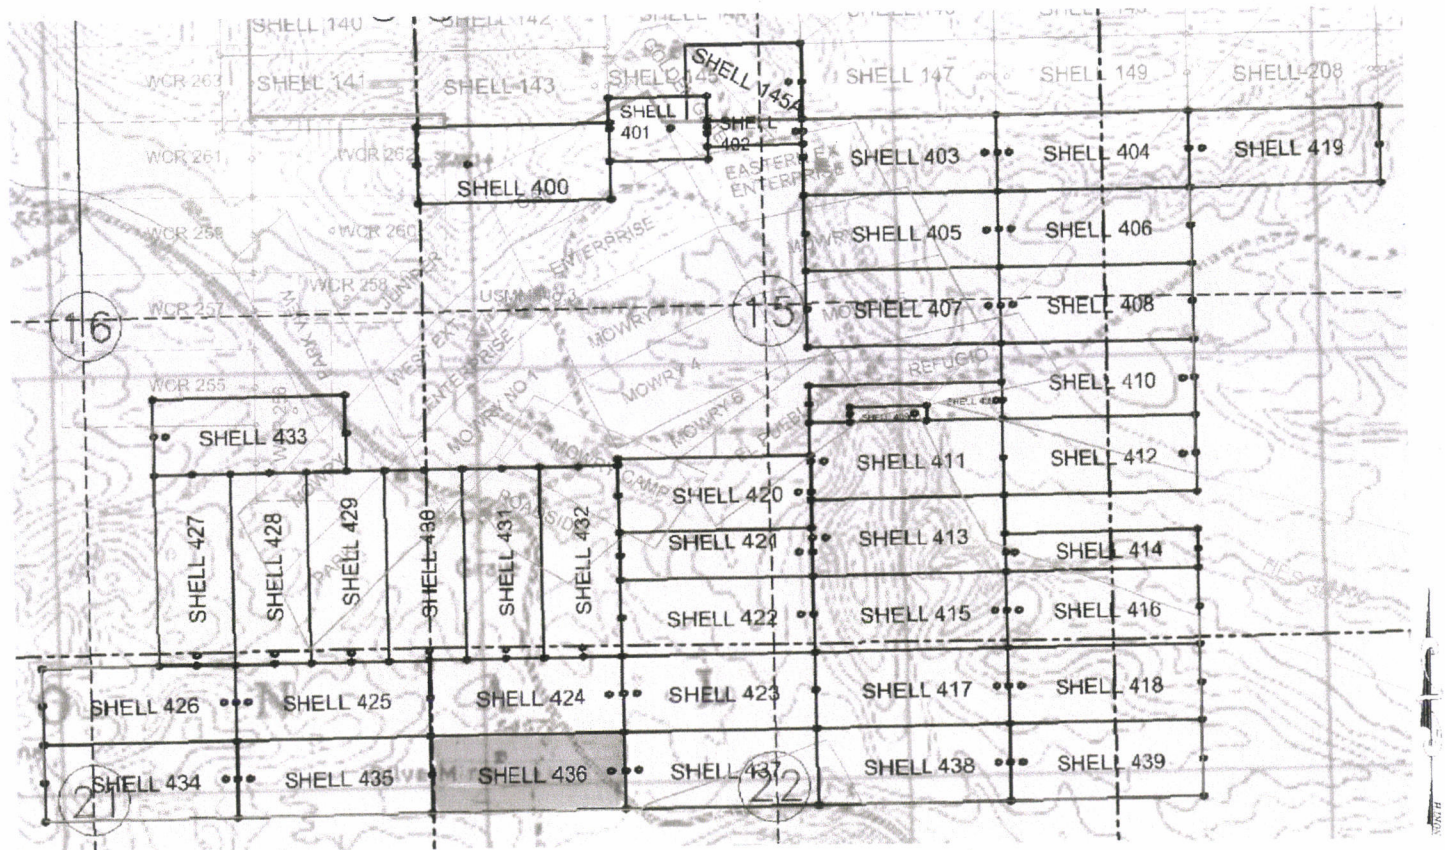 SHELL 140
SHELL 142
WCR 263
SHELL 141
SHELL 143
SHELL 145
SHELL 145A
SHELL 147
SHELL 149
SHELL 208
SHELL
401
SHELL
402
WCR 261
WCR 262
SHELL 400
EASTERN EX
ENTERPRISE
SHELL 403
SHELL 404
SHELL 419
WCR 259
WCR 260
ENTERPRISE
MOWRY
SHELL 405
SHELL 406
JUNIPER
WCR 258
WCR 257
16
15
MOWRY
SHELL 407
SHELL 408
PARK VIEW
WEST EXT
ENTERPRISE
MOWRY NO 1
MOWRY 4
MOWRY 6
REFUGIO
SHELL 410
WCR 255
WCR 256
SHELL 433
EL PUEBLO
SHELL 411
SHELL 412
MOWRY
CAMP
ROADSIDE
SHELL 420
SHELL 427
SHELL 428
SHELL 429
SHELL 430
SHELL 431
SHELL 432
SHELL 421
SHELL 413
SHELL 414
SHELL 422
SHELL 415
SHELL 416
SHELL 426
N
SHELL 425
SHELL 424
SHELL 423
SHELL 417
SHELL 418
SHELL 434
SHELL 435
SHELL 436
SHELL 437
SHELL 438
SHELL 439
21
22